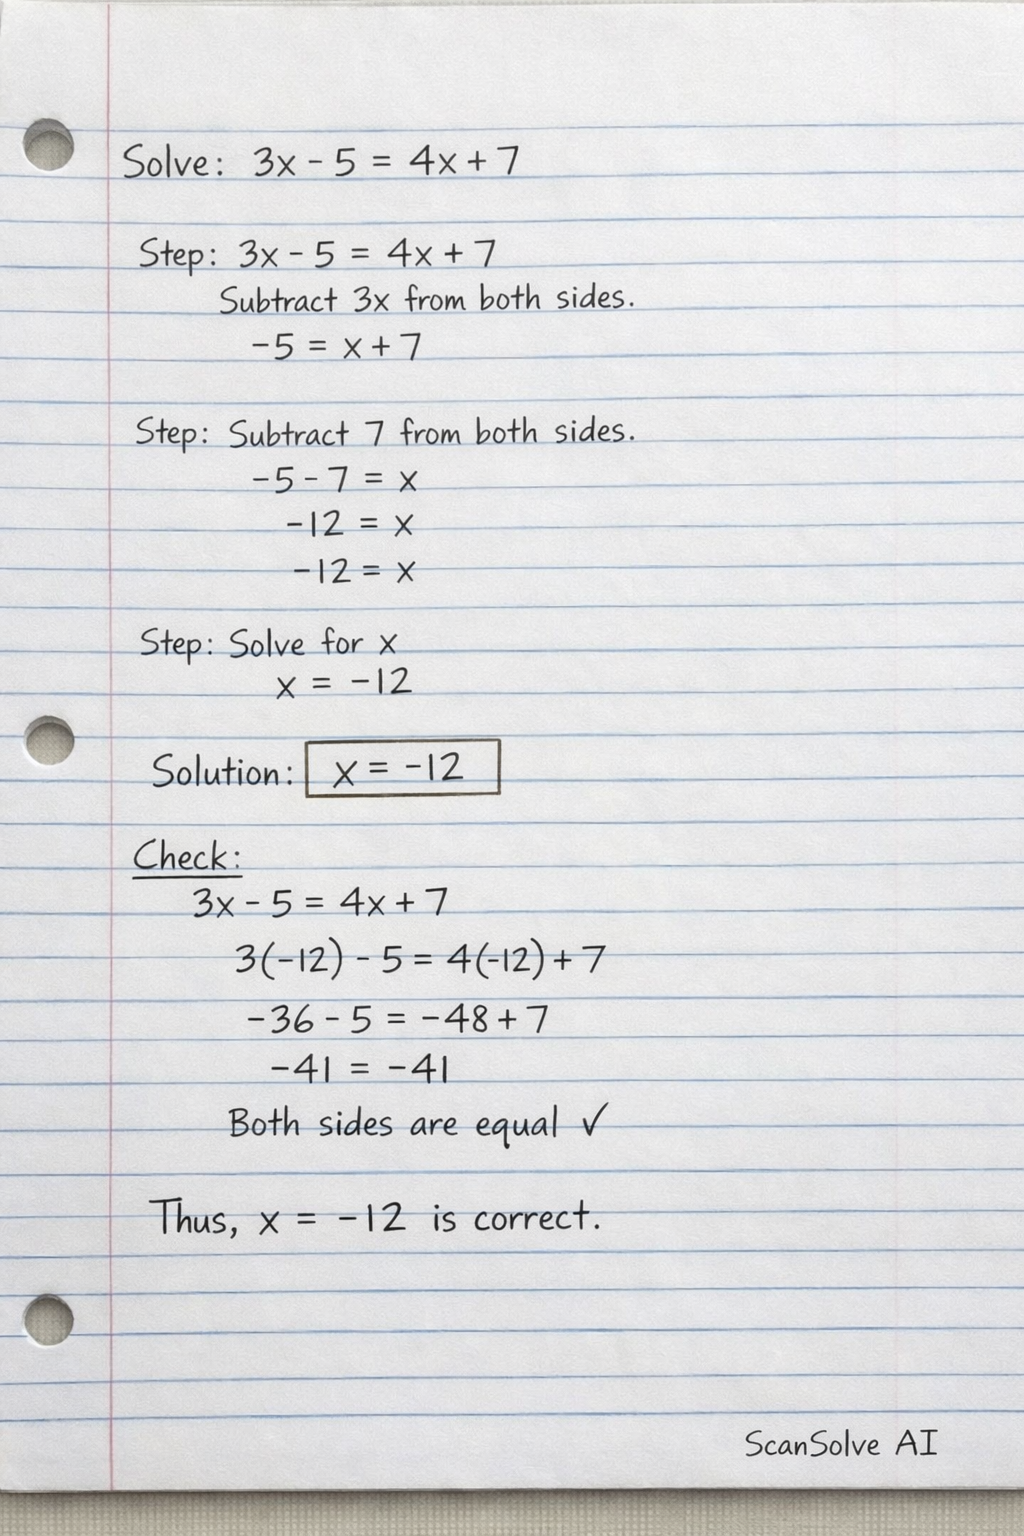 Solve: 3x - 5 = 4x + 7
Step: 3x - 5 = 4x + 7
Subtract 3x from both sides.
-5 = x + 7
Step: Subtract 7 from both sides.
-5 - 7 = x
-12 = x
-12 = x
Step: Solve for x
x = -12
Solution: x = -12
Check:
3x - 5 = 4x + 7
3(-12) - 5 = 4(-12) + 7
-36 - 5 = -48 + 7
-41 = -41
Both sides are equal ✓
Thus, x = -12 is correct.
ScanSolve AI